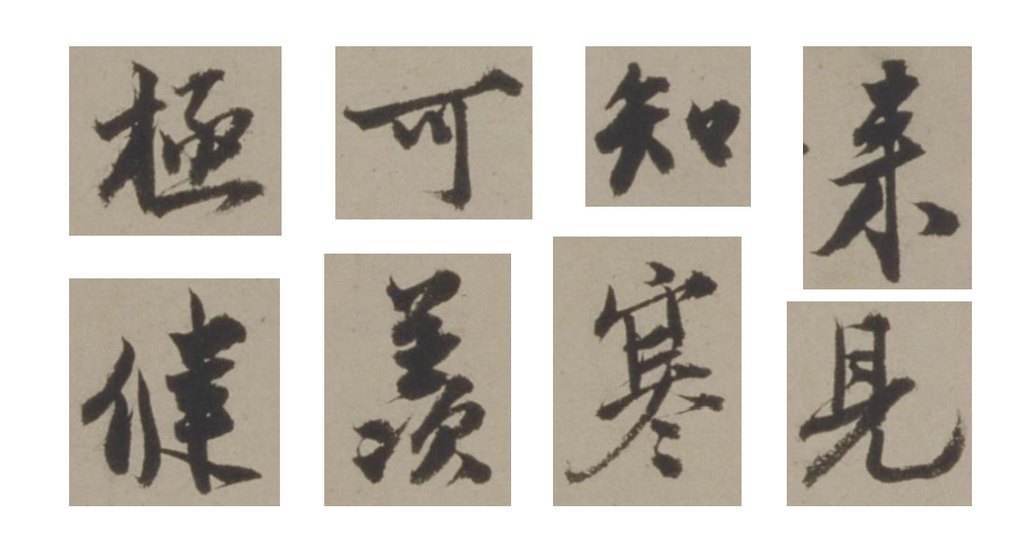 極可知
健羨寒見